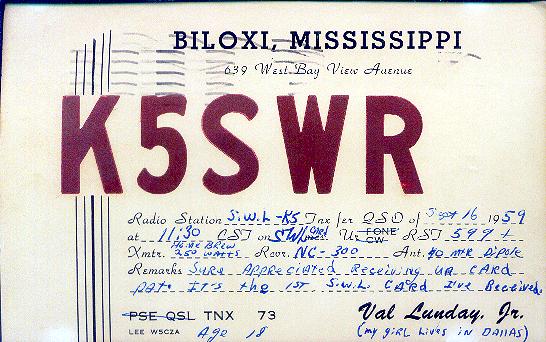 BILOXI, MISSISSIPPI
639 West Bay View Avenue
K5SWR
Radio Station S.W.L-K5 Tnx for QSO of Sept 16 1959
at 11:30 CST on SWL card Ur FONE CW RST 599+
Xmtr. HOME BREW 250 WATTS Rcvr. NC-300 Ant. 40 mtr Dipole
Remarks Sure Appreciated Receiving ur CARD
Pat. It's the 1st S.W.L. CARD I've Received.
PSE QSL TNX 73 Val Lunday, Jr.
LEE W5CZA Age 18 (my girl lives in DAllAS)